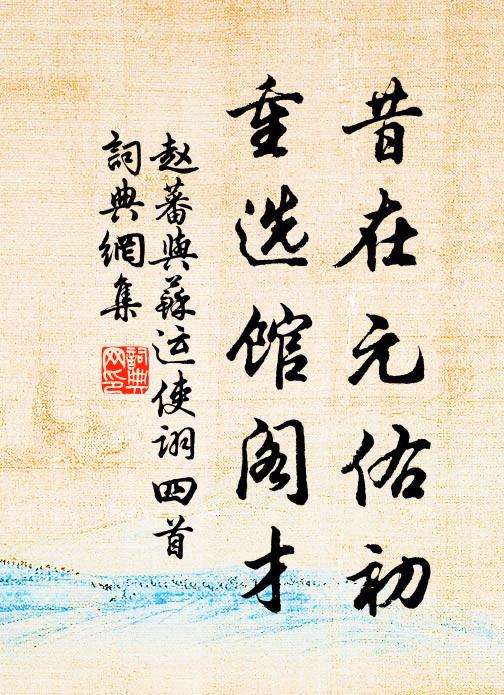 昔在元佑初
重选馆阁才
赵蕃與蘇运使诩四首
詞典網集
詞典
网印